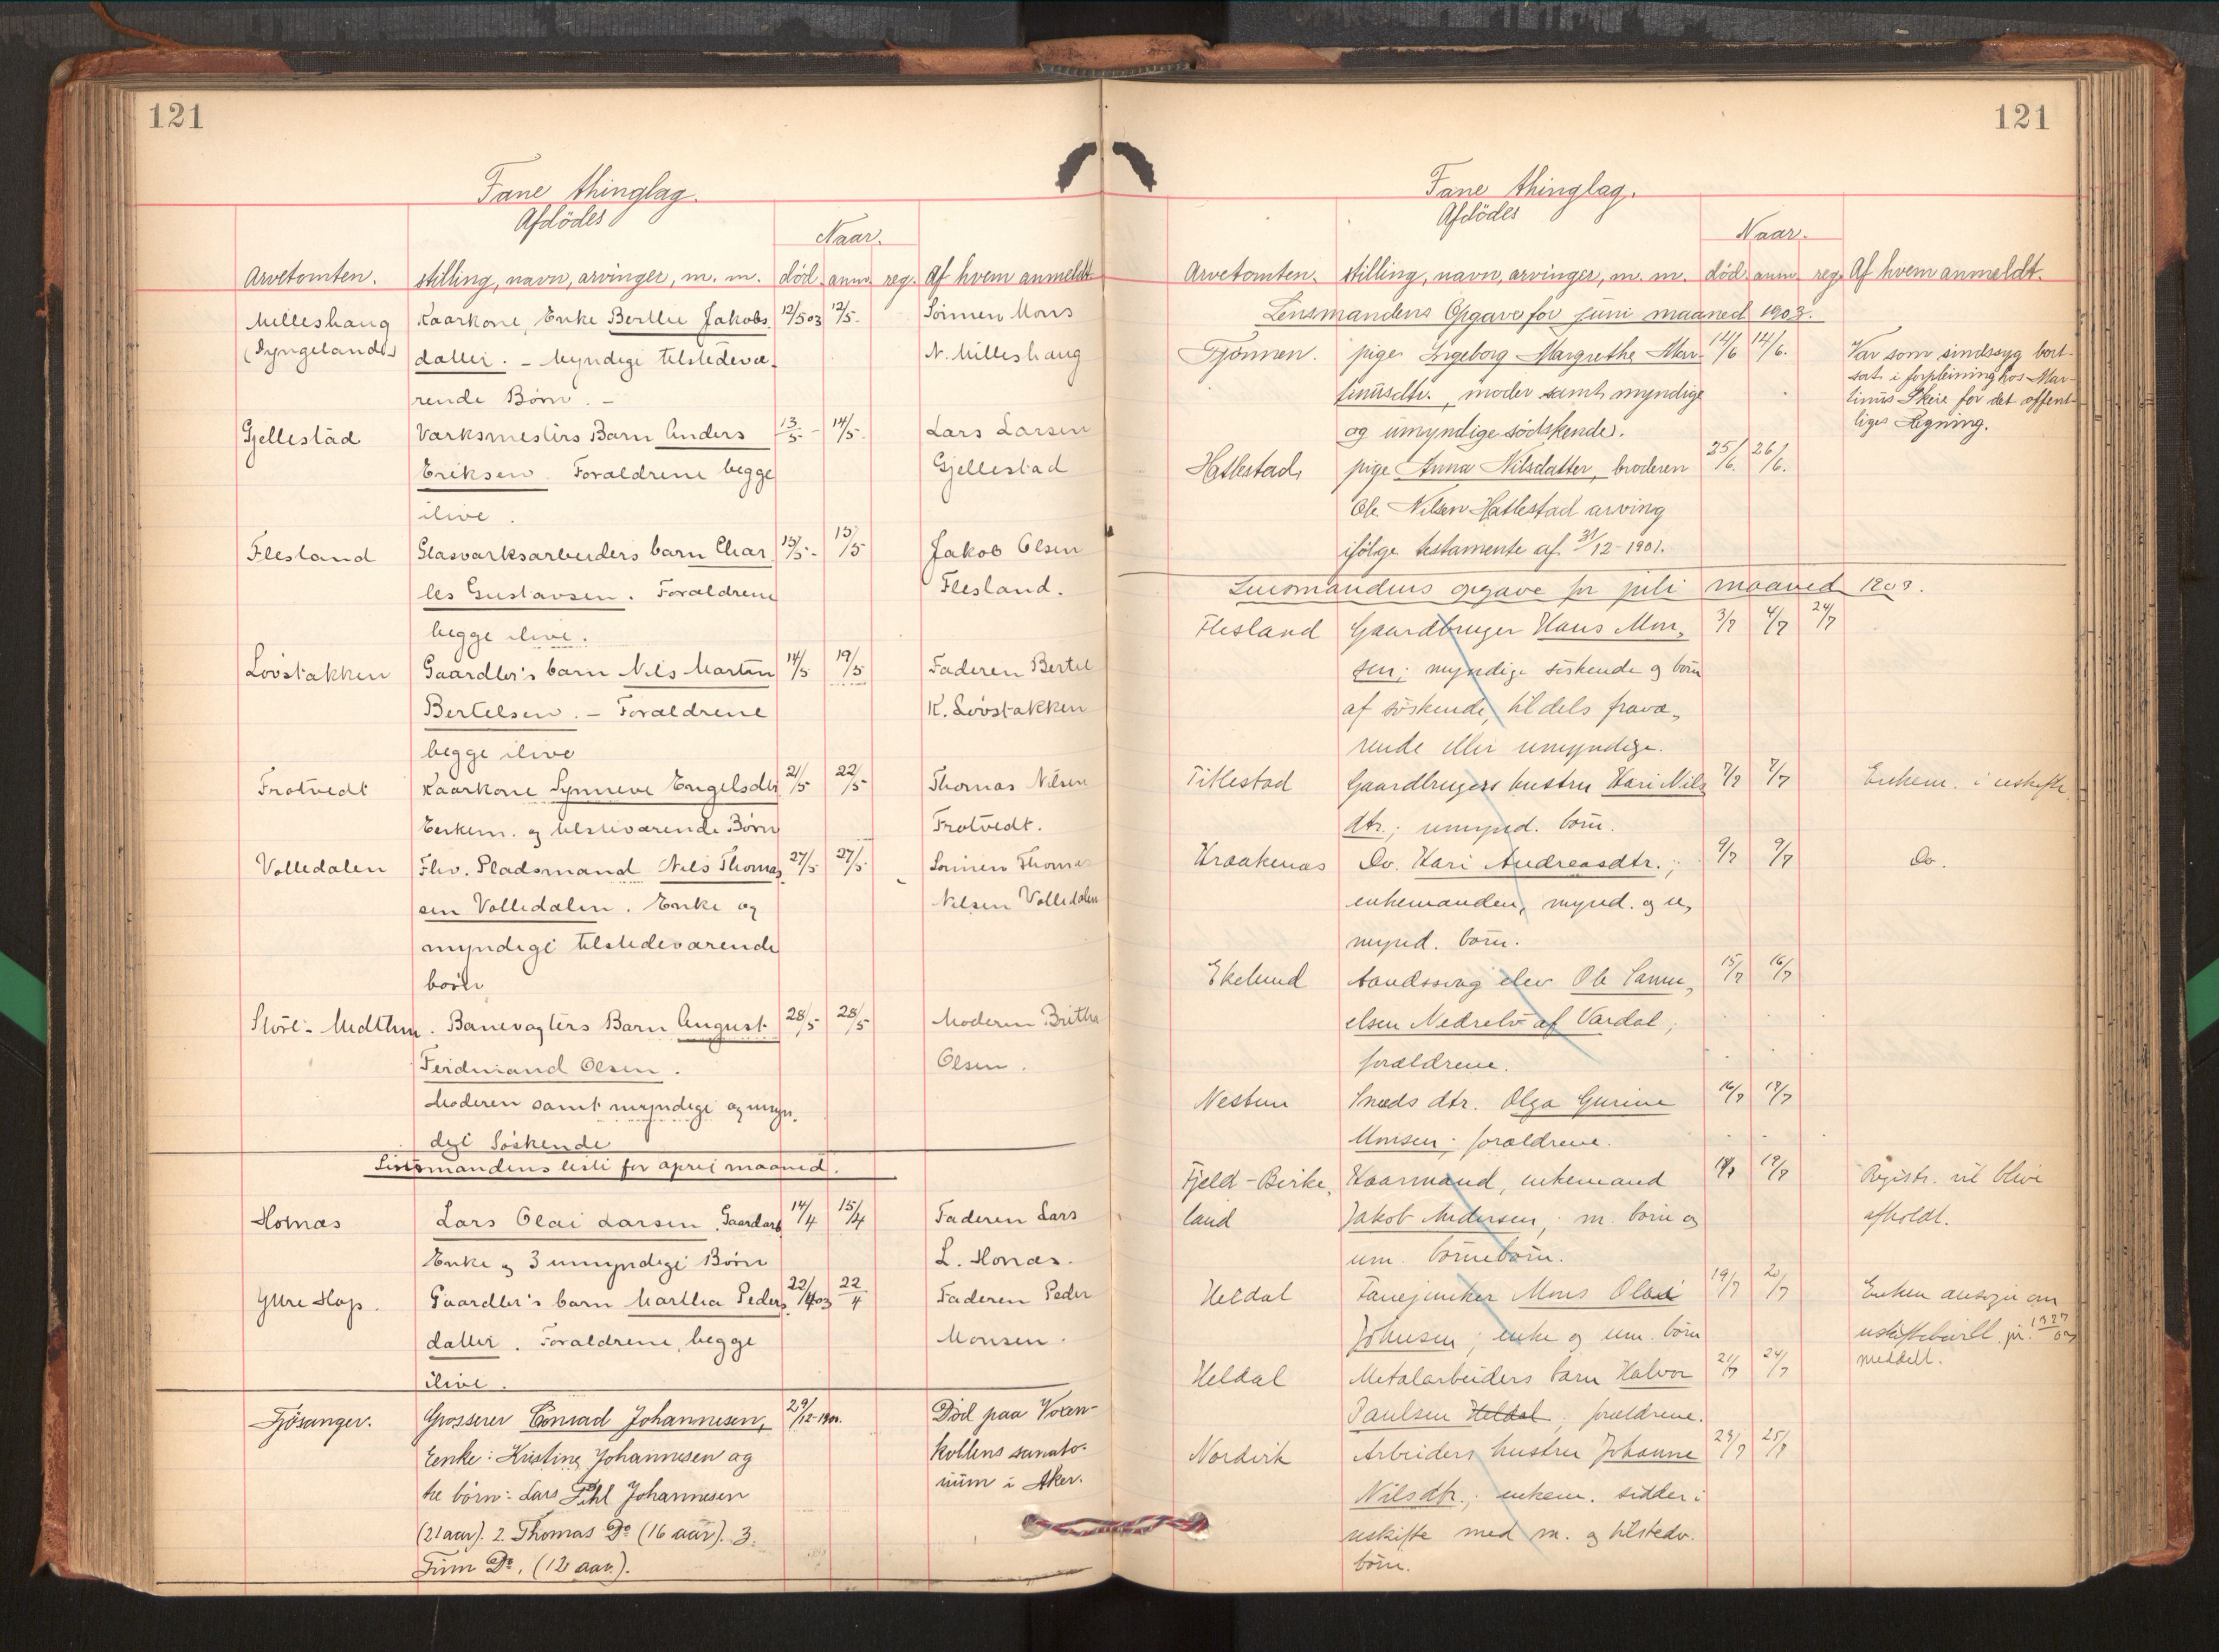 121
Fane thinglag.
Afdödes
Naar.
Arvetomten. stilling, navn, arvinger, m. m. död. anm. reg. Af hvem anmeldt.
Milleshaug Kaarkone, Enke Berthe Jakobs 12/5 03 12/5. Sönnen Mons
datter. – Myndige tilstedevæ- N. Milleshaug
rende Börn. –
Gjellestad Værksmesters Barn Anders 13/5 – 14/5. Lars Larsen
Eriksen. Forældrene begge Gjellestad
ilive.
Flesland Glasværksarbeiders barn Char 13/5 - 15/5 Jakob Olsen
les Gustavsen. Forældrene Flesland.
begge ilive.
Lövstakken Gaardbr's barn Nils Martin 14/5 19/5 Faderen Bertel
Bertelsen. – Forældrene K. Lövstakken
begge ilive
Frotvedt Kaarkone Synneve Engelsdtr 21/5 22/5 Thomas Nilsen
Enkem. og tilstedværende Börn Frotvedt.
Volledalen Fhv. Pladsmand Nils Thomas 27/5 27/5 Sönnen Thomas
sen Volledalen. Enke og Nilsen Volledalen
myndige tilstedeværende
börn
Store-Midthun. Banevagters Barn August 28/5 28/5 Moderen Britha
Ferdinand Olsen. Olsen.
Moderen samt myndige og umyn-
dige Söskende
Lensmandens liste for april maaned.
Honæs Lars Olai Larsen, Gaardarb 14/4 15/4 Faderen Lars
Enke og 3 umyndige Börn L. Honæs.
Ytre Hop. Gaardbr's barn Martha Peders 22/4 03 22/4 Faderen Peder
datter. Forældrene begge Monsen.
ilive.
Fjösanger. Grosserer Conrad Johannesen, 29/12-1901. Död paa Voxen-
Enke: Kristine Johannesen og kollens sanato-
tre börn: Lars Pihl Johannesen rium i Aker.
(21 aar). 2. Thomas Do (16 aar). 3.
Finn Do. (12 aar.).
121
Fane thinglag.
Afdödes
Naar.
Arvetomten. stilling, navn, arvinger, m. m. död. anm. reg. Af hvem anmeldt.
Lensmandens Opgave for juni maaned 1903.
Tjönnen. pige Ingeborg Margrethe Mar- 14/6 14/6. Var som sindssyg bort-
tinusdtr., moder samt myndige sat i forpleining hos Mar-
tinus Skeie for det offent-
og umyndige södskende. liges Regning.
Hatlestad, pige Anna Nilsdatter, broderen 25/6. 26/6.
Ole Nilsen Hatlestad arving
ifölge testamente af 31/12-1901.
Lensmandens opgave for juli maaned 1903.
Flesland Gaardbruger Hans Mon- 3/7 4/7 24/7
sen; myndige söskende og börn
af söskende, tildels fravæ-
rende eller umyndige.
Titlestad Gaardbrugers hustru Kari Nils 7/7 7/7 Enkem. i uskifte
dtr.; umynd. börn.
Kraakenæs Do. Kari Andreasdtr.; 9/7 9/7 Do.
enkemanden, mynd. og u-
mynd. börn.
Ekelund Aandssvag elev Ole Samu- 15/7 16/7
elsen Nedrelö af Vardal;
forældrene.
Nestun Smeds dtr. Olga Gurine 16/7 18/7
Monsen; forældrene.
Fjeld-Birke- Kaarmand, enkemand 18/7 19/7 Registr. vil blive
land Jakob Andersen; m. börn og afholdt.
um. börnebörn.
Heldal Fanejunker Mons Olai 19/7 20/7 Enken ansøgn om
Johnsen; enke og um. börn uskiftebevill.
meddelt.
Heldal Metalarbeiders barn Halvor 21/7 24/7
Paulsen Heldal; forældrene.
Nordvik Arbeiders hustru Johanne 23/7 25/7
Nilsdtr.; enkem. sidder i
uskifte med m. og tilstedv.
börn.